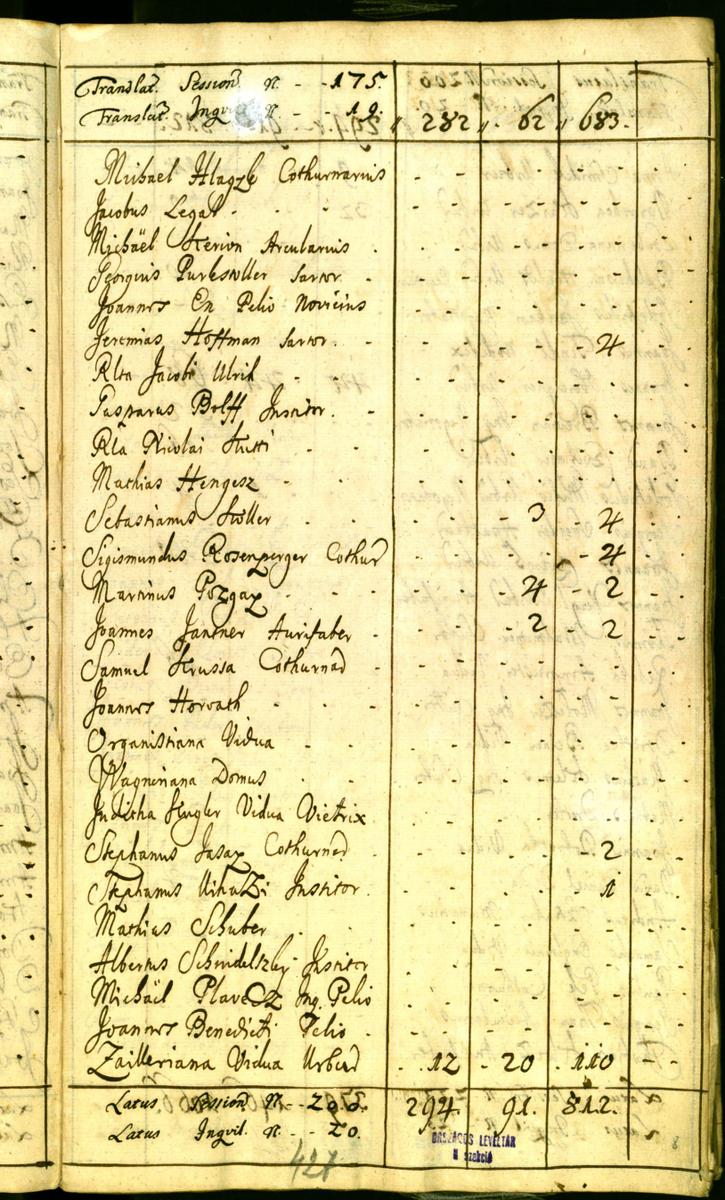 Translat. Session. N. - - 175.
Translat. Inqvil. N. - - 19. 282 62 683.
Michael Hlagze Cothurnarius
Jacobus Legat
Michäel Sterion Arcularius
Georgius Purkstoller Sartor
Joannes En Pelio Novicius
Jeremias Hoffman Sartor. 4
Rlta Jacobi Ulrik
Gasparus Bolff Institor
Rla Nicolai Stutti
Mathias Hengesz
Sebastianus Stoller 3 4
Sigismundus Rosenperger Cothur 4
Martinus Pozgay 4 2
Joannes Jantner Aurifaber 2 2
Samuel Krussa Cothurnad
Joannes Horvath
Organistiana Vidua
Wagneriana Domus
Juditha Vidua Vietrix
Stephanus Jasay Cothurned 2
Stephanus Uihazi Institor 1
Mathias Schuber
Albertus Schindeltzky Institor
Michäil Plavecz Inq. Pelio
Joannes Benedicti Pelio
Zailleriana Vidua Urbud 12 20 110
Latus Session. N. - - 205. 294 91. 812.
Latus Inqvil. N. - - 20.
ORSZÁGOS LEVÉLTÁR
N szekció
427